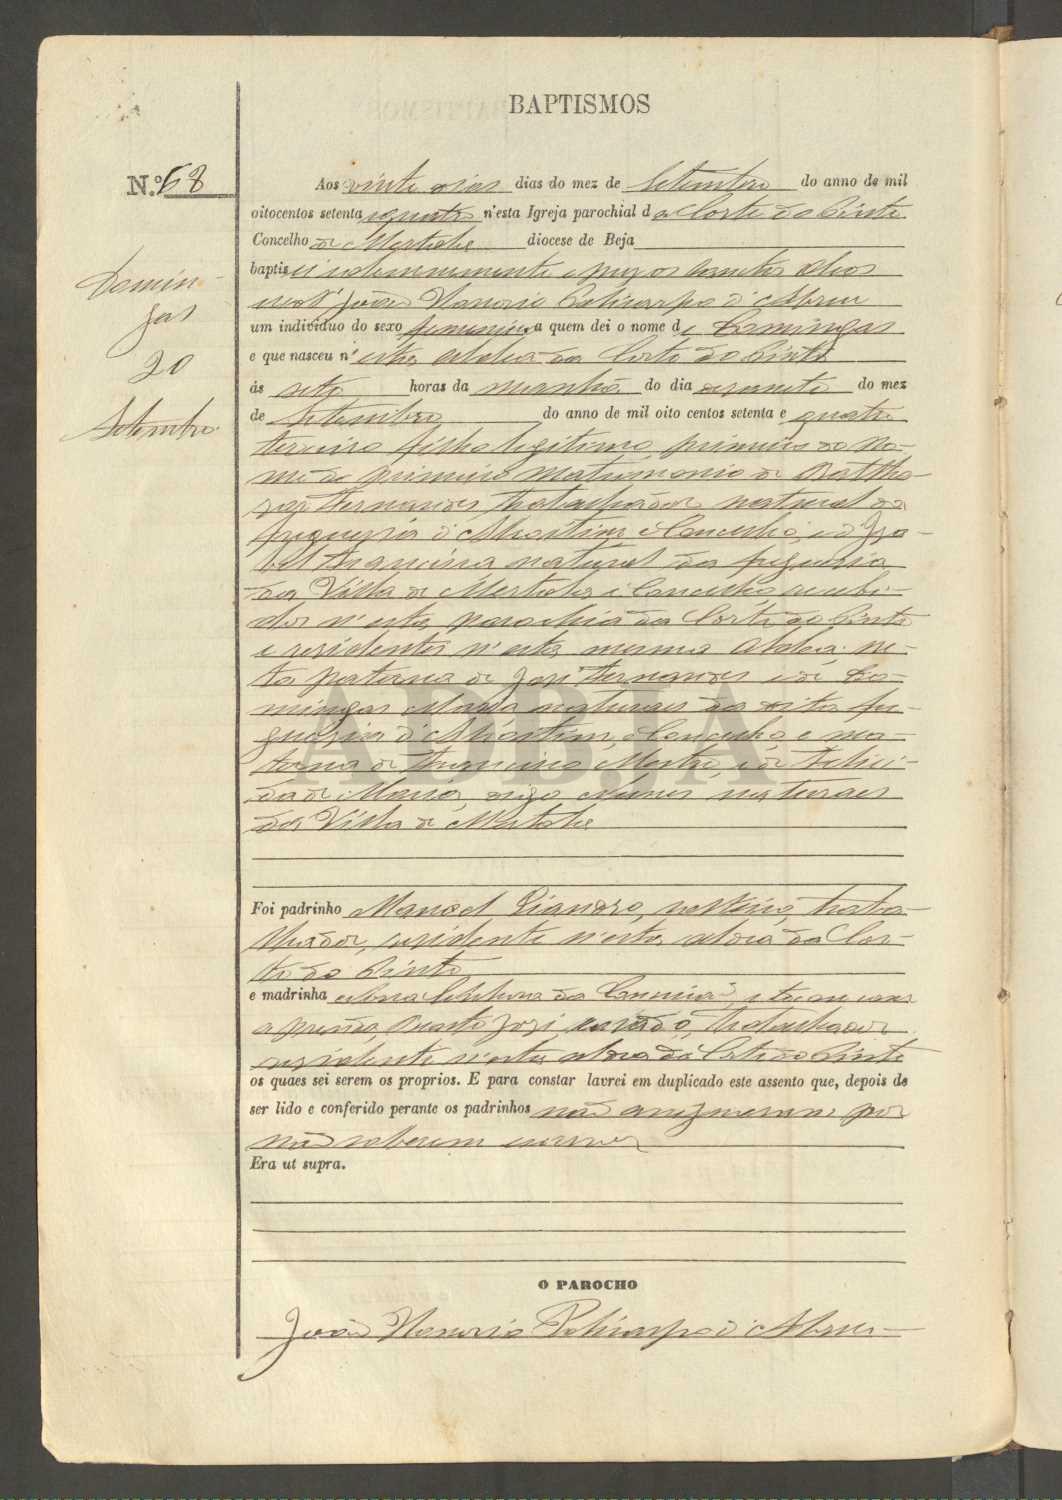 BAPTISMOS
N.º 68
Domin-
gas
20
Setembro
Aos vinte dias dias do mez de Setembro do anno de mil
oitocentos setenta e quatro n'esta Igreja parochial da Corte do Pinto
Concelho de Mertola diocese de Beja
baptisei solemnemente e puz os Sanctos oleos
João Honorio Policarpo d'Abreu
um individuo do sexo femenino a quem dei o nome de Domingas
e que nasceu n'esta aldeia da Corte do Pinto
ás sete horas da manhã do dia do mez
de Setembro do anno de mil oito centos setenta e quatro
terceiro filho legitimo, primeiro do no-
me do primeiro matrimonio de Baltha-
zar Fernandes, trabalhador natural da
freguezia d' Concelho, e d'Iza-
bel Francisca natural da freguezia
da Villa de Mertola e Concelho, recebi-
dos n'esta parochia da Corte do Pinto
e residentes n'esta mesma aldeia; ne-
ta paterna de José Fernandes e de Do-
mingas Maria naturaes da dita fre-
guezia d' Concelho, e ma-
terna de Francisco Mestre, e de Felici-
dade Maria, digo Nunes naturaes
da Villa de Mertola
Foi padrinho Manoel Liandro, solteiro, traba-
lhador, residente n'esta aldeia da Cor-
te do Pinto
e madrinha Nossa Senhora da Conceição, e tocou com
a prenda, José, casado, trabalhador
residente n'esta aldeia da Corte do Pinto
os quaes sei serem os proprios. E para constar lavrei em duplicado este assento que, depois de
ser lido e conferido perante os padrinhos não assignaram por
não saberem escrever
Era ut supra.
O PAROCHO
João Honorio Policarpo d'Abreu
ADBJA